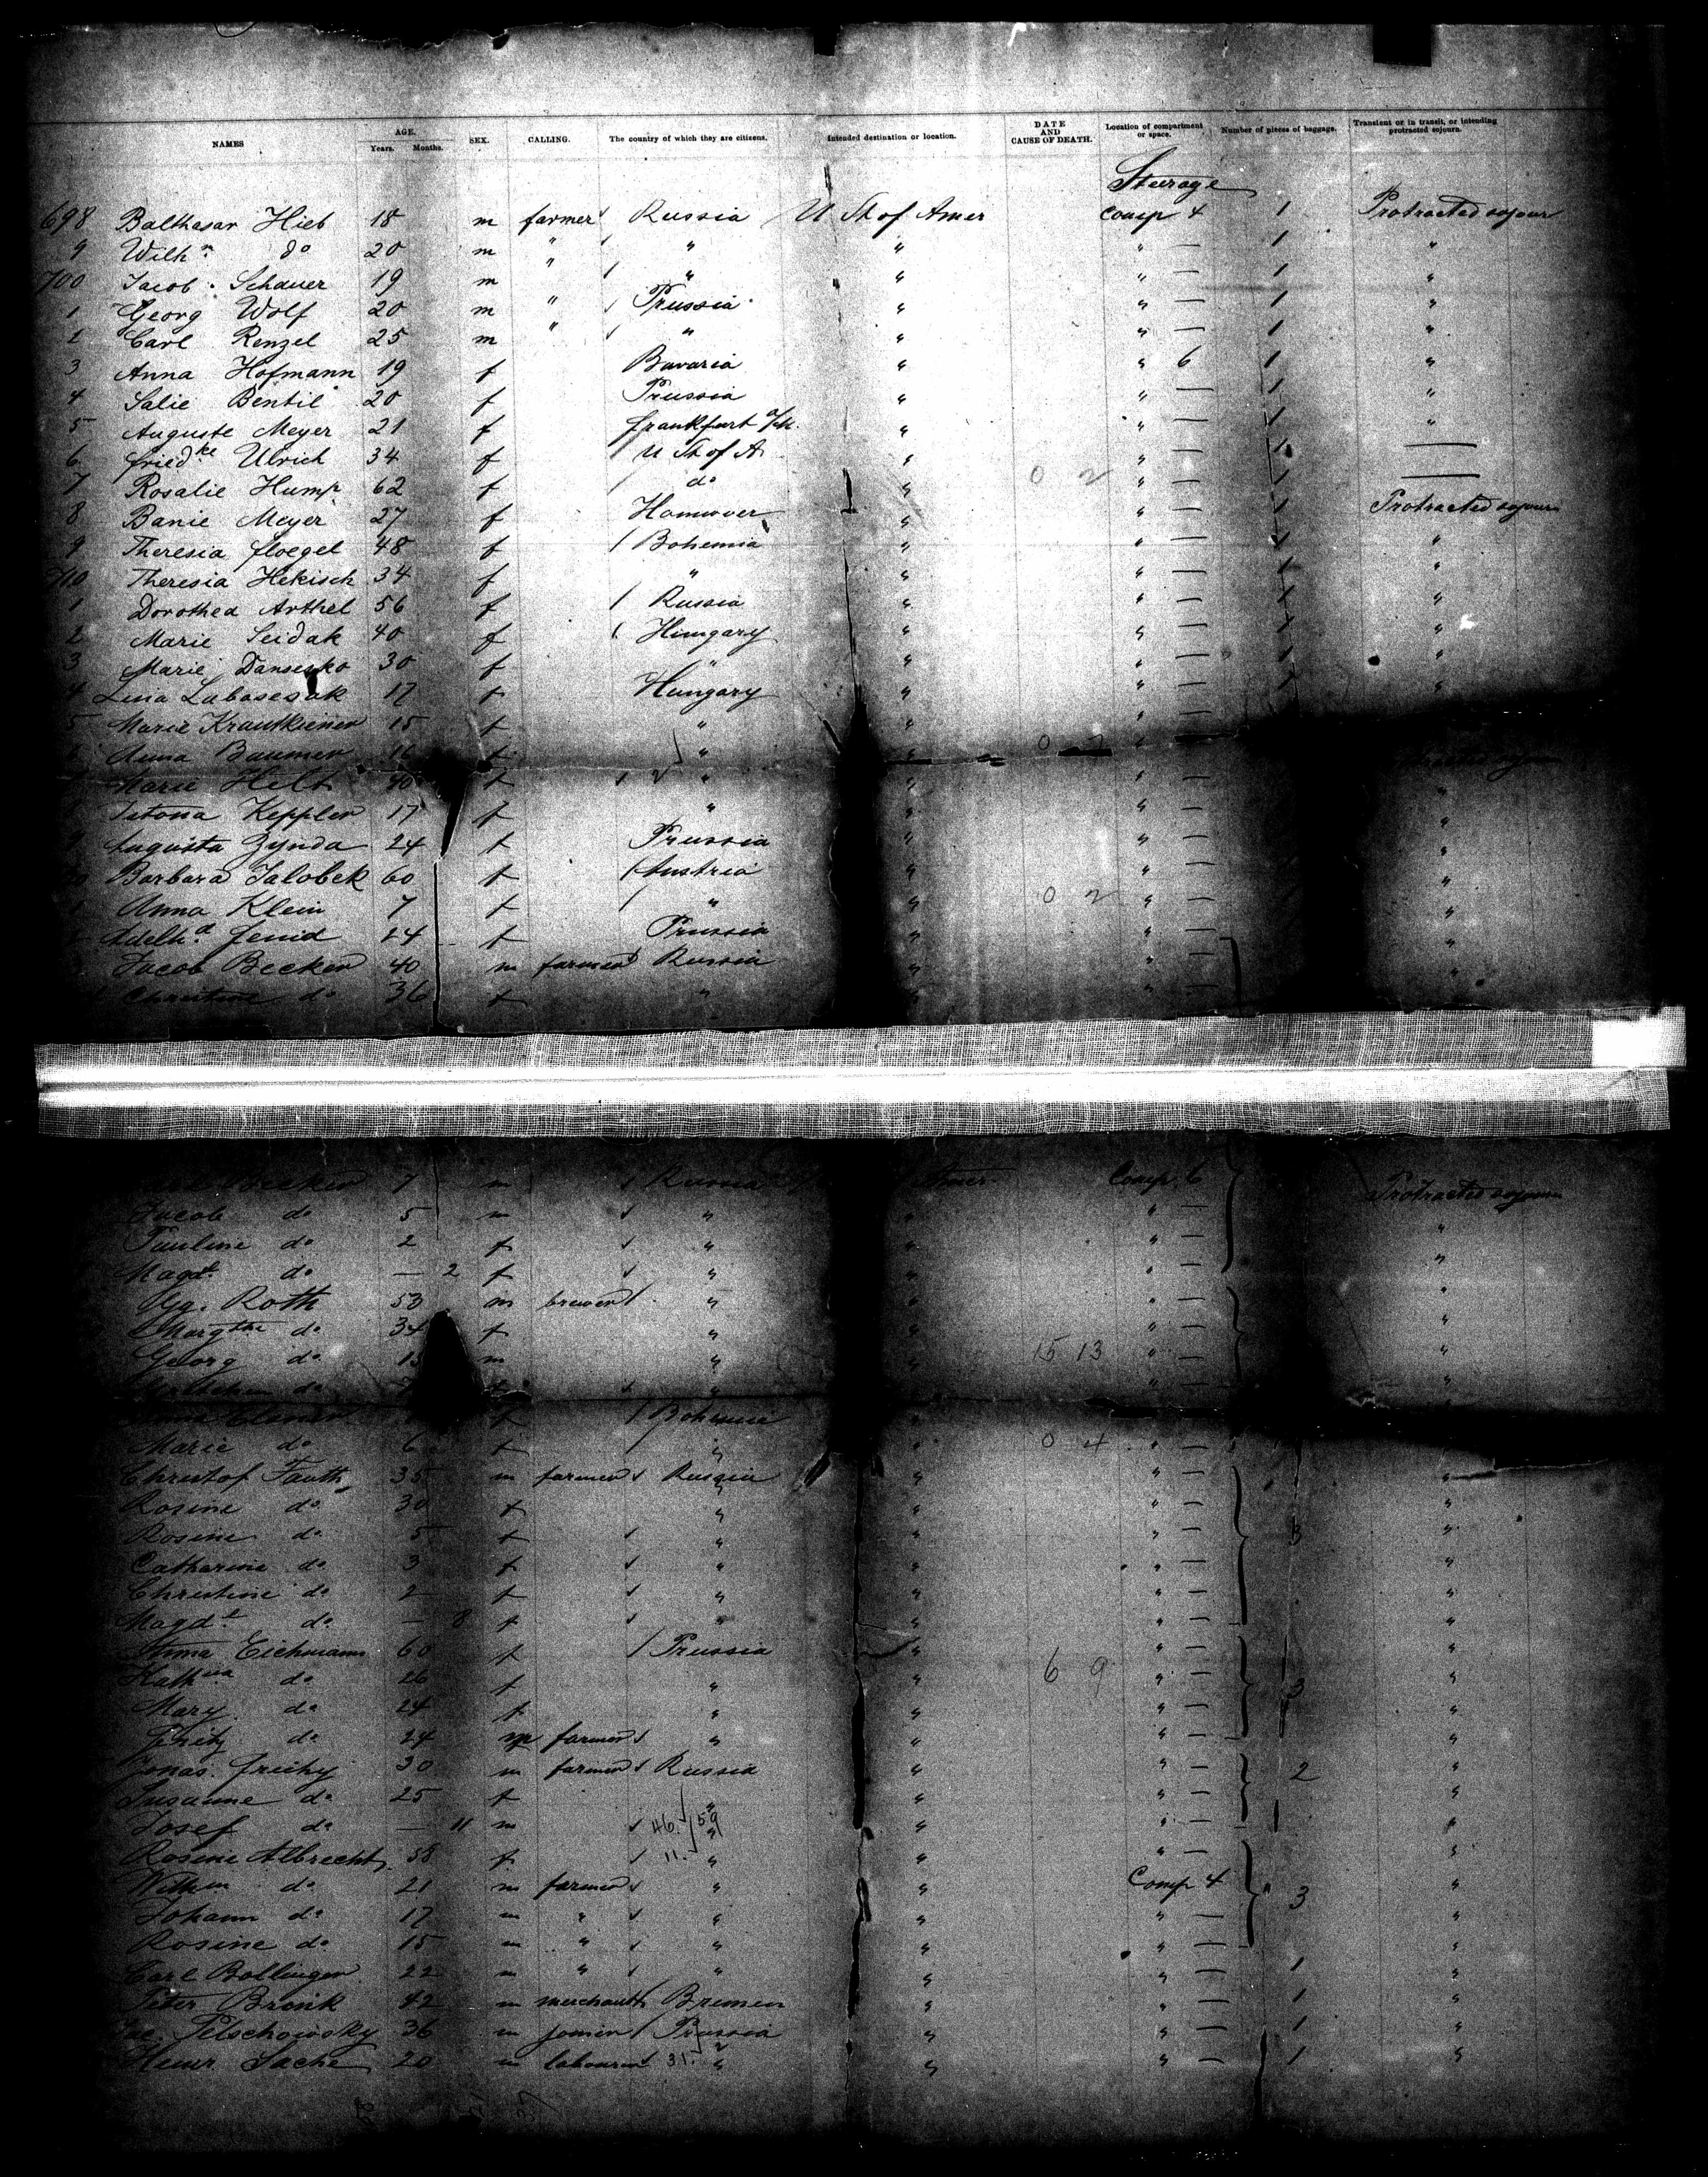 NAMES AGE. Years. Months. SEX. CALLING. The country of which they are citizens. Intended destination or location. DATE AND CAUSE OF DEATH. Location of compartment or space. Number of pieces of baggage. Transient or in transit, or intending protracted sojourn.
Steerage
698 Balthasar Hieb 18 m farmer Russia U St of Amer Comp 4 1 Protracted sojour
9 Wilhm do 20 m " " " " — 1 "
700 Jacob Schauer 19 m " " " " — 1 "
1 Georg Wolf 20 m " Prussia " " — 1 "
2 Carl Renzel 25 m " " " " — 1 "
3 Anna Hofmann 19 f Bavaria " " 6 1 "
4 Salie Bentil 20 f Prussia " " — 1 "
5 Auguste Meyer 21 f Frankfurt a/M. " " — 1 "
6 Friedke Ulrich 34 f U St of A " " — 1 —
7 Rosalie Hump 62 f do " 0 2 " — 1 —
8 Banie Meyer 27 f Hannover " " — 1 Protracted sojourn
9 Theresia Floegel 48 f Bohemia " " — 1 "
710 Theresia Hekisch 34 f " " " — 1 "
1 Dorothea Arthel 56 f Russia " " — 1 "
2 Marie Seidak 40 f Hungary " " — 1 "
3 Marie Dansesko 30 f " " " — 1 "
4 Lina Labasesak 17 f Hungary " " — 1 "
5 Marie Krautkremer 15 f " " " —
Anna Baumer 16 f " " 0 2 " —
Marie Helt 40 f " " " — "
Keppler 17 f " " " — "
Augusta Zynda 24 f Prussia " " — "
Barbara Jalobek 60 f Austria " " — "
1 Anna Klein 7 f " " 0 2 " — "
Adelhd Jenid 24 f Prussia " " — "
Jacob Becker 40 m farmer Russia " " — "
Christine do 36 f " " " —
Becker 7 m Russia Amer. Comp. 6 Protracted sojourn
Jacob do 5 m " " " — "
Pauline do 2 f " " " — "
Magdt do — 2 f " " " — "
Gg. Roth 53 m brewer " " " — "
Margthe do 34 f " " " — "
Georg do 15 m " " 15 13 " — "
do f " " " — "
Bohemia "
Marie do 6 f " " 0 4 " —
Christof Fauth 35 m farmer Russia " " — "
Rosine do 30 f " " " — "
Rosine do 5 f " " " — 3 "
Catharine do 3 f " " " — "
Christine do 2 f " " " — "
Magdt do — 8 f " " " — "
Anna Eichmann 60 f Prussia " " — "
Kathna do 26 f " " 6 9 " — 3 "
Mary do 24 f " " " — "
do 24 m farmer " " " — "
Jonas 30 m farmer Russia " " — 2 "
Susanne do 25 f " " " — "
Josef do — 11 m 46. 59 " " " — "
Rosine Albrecht 58 f 11. " " " — "
Wilhm do 21 m farmer " " Comp 4 3 "
Johann do 17 m " " " " — "
Rosine do 15 m " " " " — "
Carl Bollinger 22 m " " " " — 1 "
Peter Bronk 42 m merchant Bremen " " — 1 "
Jac. Pelschowsky 36 m Prussia " " — 1 "
Heinr. Sache 20 m labourer 31. " " " — 1 "